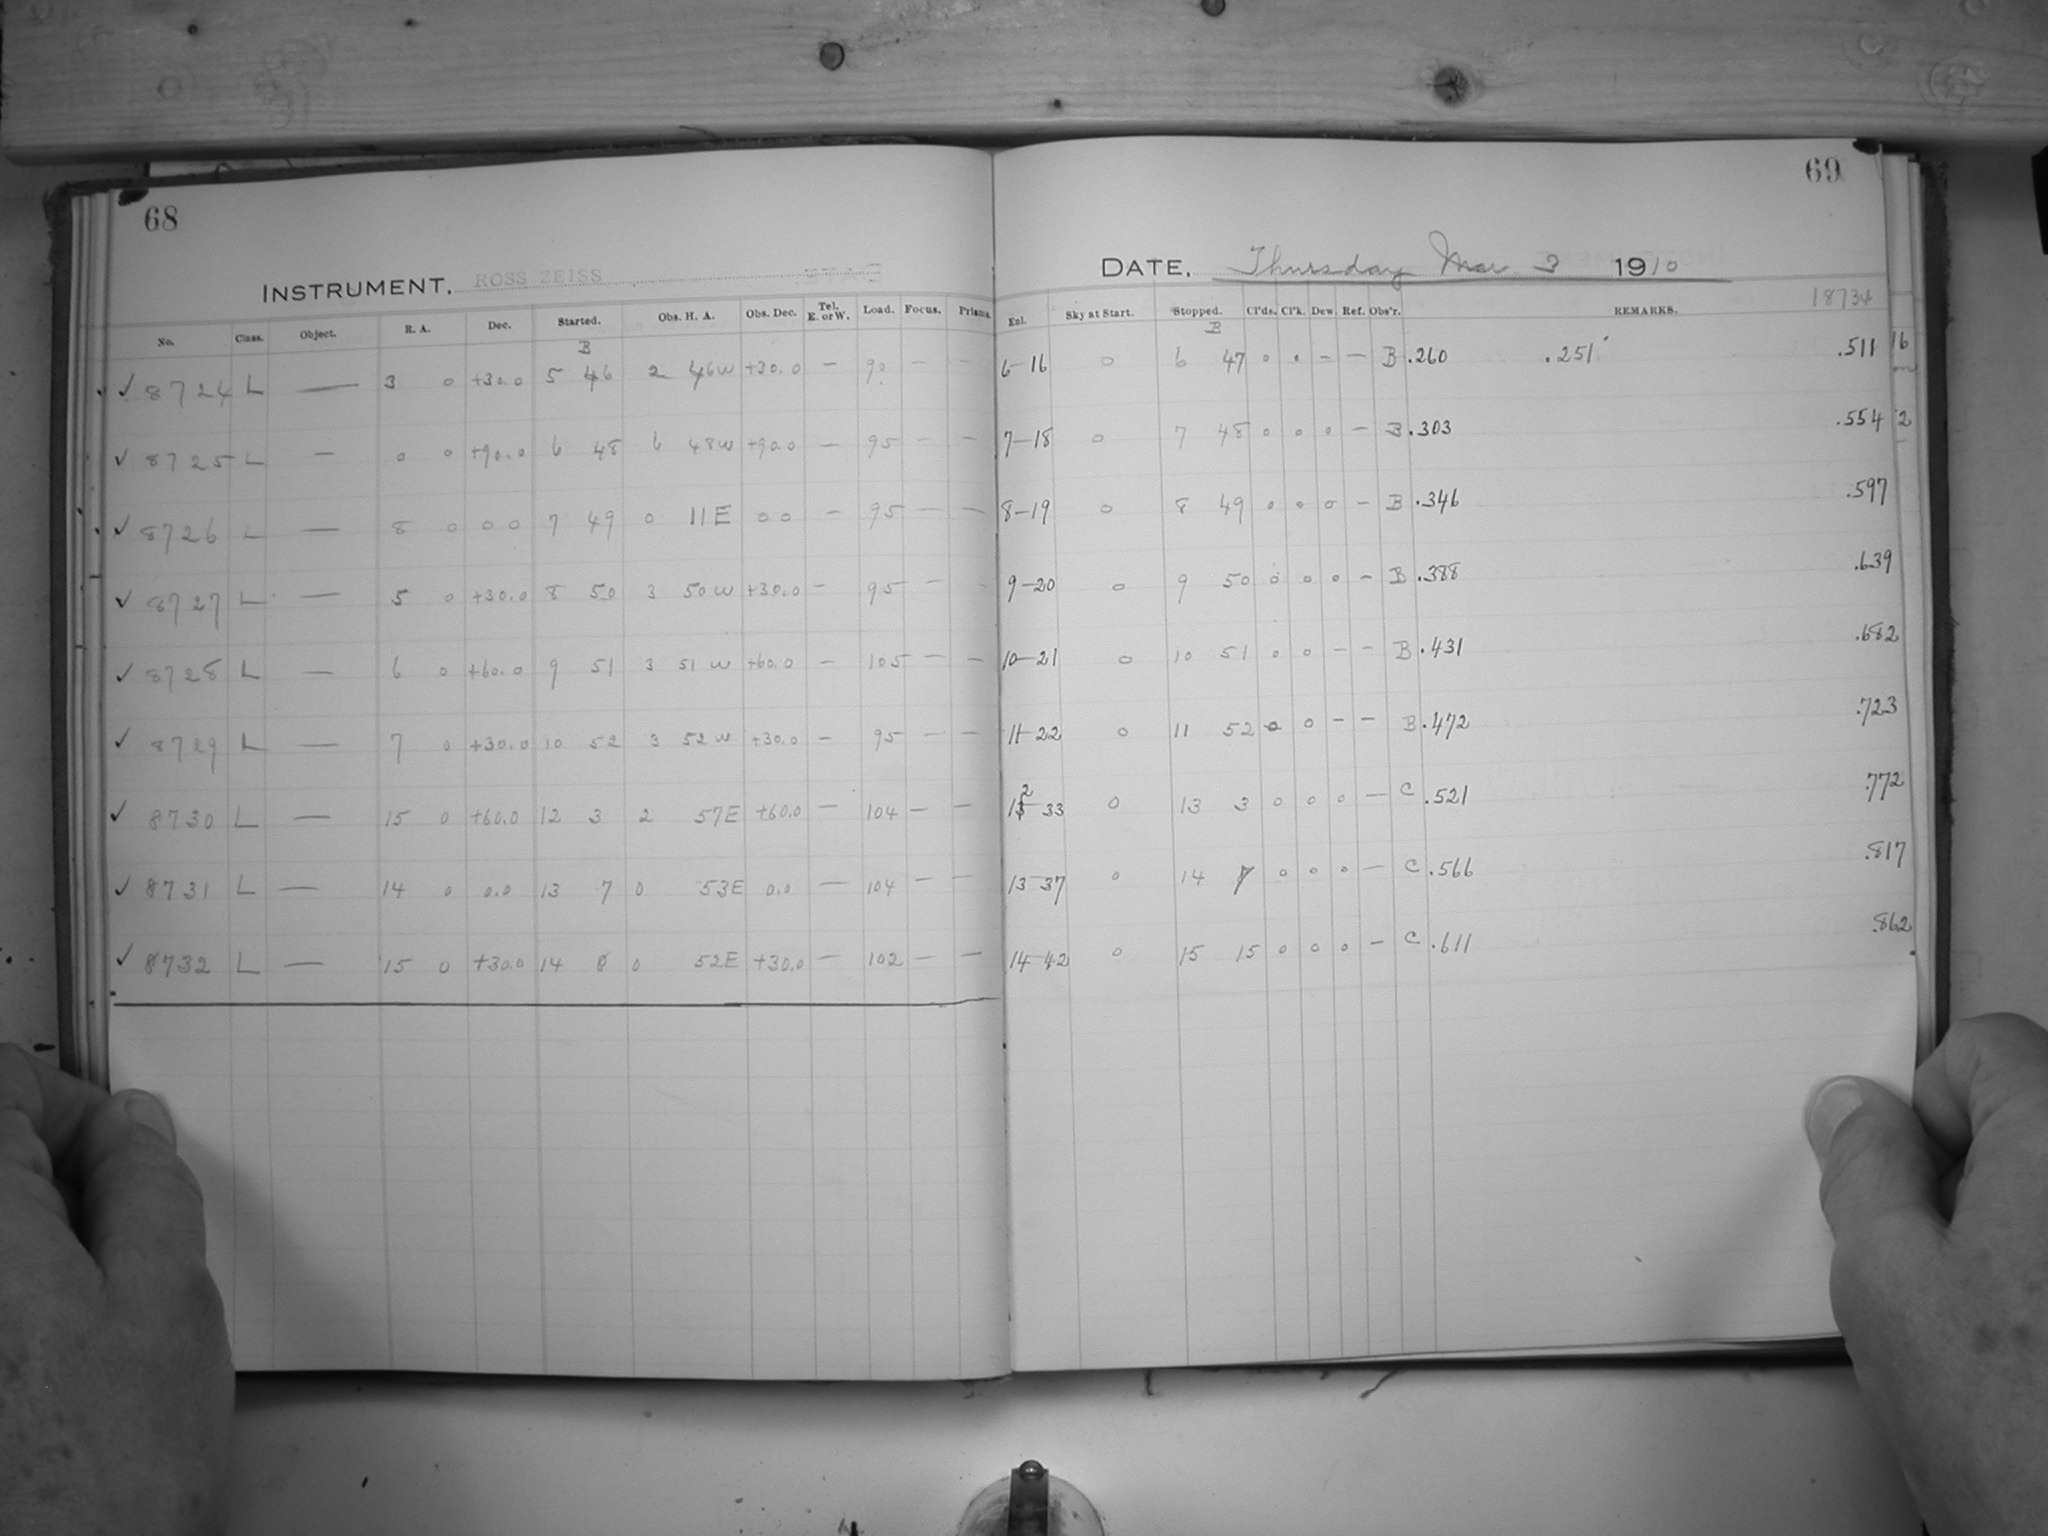 68
INSTRUMENT. ROSS ZEISS
No. Class. Object. R. A. Dec. Started. Obs. H. A. Obs. Dec. Tel. E. or W. Load. Focus. Prisms.
B
✓ 8724 L — 3 0 +30.0 5 46 2 46W +30.0 — 90 — —
✓ 8725 L — 0 0 +90.0 6 48 6 48W +90.0 — 95 — —
✓ 8726 L — 8 0 0 0 7 49 0 11E 0 0 — 95 — —
✓ 8727 L — 5 0 +30.0 8 50 3 50W +30.0 — 95 — —
✓ 8728 L — 6 0 +60.0 9 51 3 51W +60.0 — 105 — —
✓ 8729 L — 7 0 +30.0 10 52 3 52W +30.0 — 95 — —
✓ 8730 L — 15 0 +60.0 12 3 2 57E +60.0 — 104 — —
✓ 8731 L — 14 0 0.0 13 7 0 53E 0.0 — 104 — —
✓ 8732 L — 15 0 +30.0 14 8 0 52E +30.0 — 102 — —
69
DATE, Thursday Mar 3 1910
18734
Enl. Sky at Start. Stopped. Cl'ds. Cl'k. Dew. Ref. Obs'r. REMARKS.
B
6-16 0 6 47 0 0 — — B .260 .251 .511
7-18 0 7 48 0 0 0 — B .303 .554
8-19 0 8 49 0 0 0 — B .346 .597
9-20 0 9 50 0 0 0 — B .388 .639
10-21 0 10 51 0 0 — — B .431 .682
11-22 0 11 52 0 0 — — B .472 .723
2
13 33 0 13 3 0 0 0 — C .521 .772
13-37 0 14 7 0 0 0 — C .566 .817
14-42 0 15 15 0 0 0 — C .611 .862
16
2